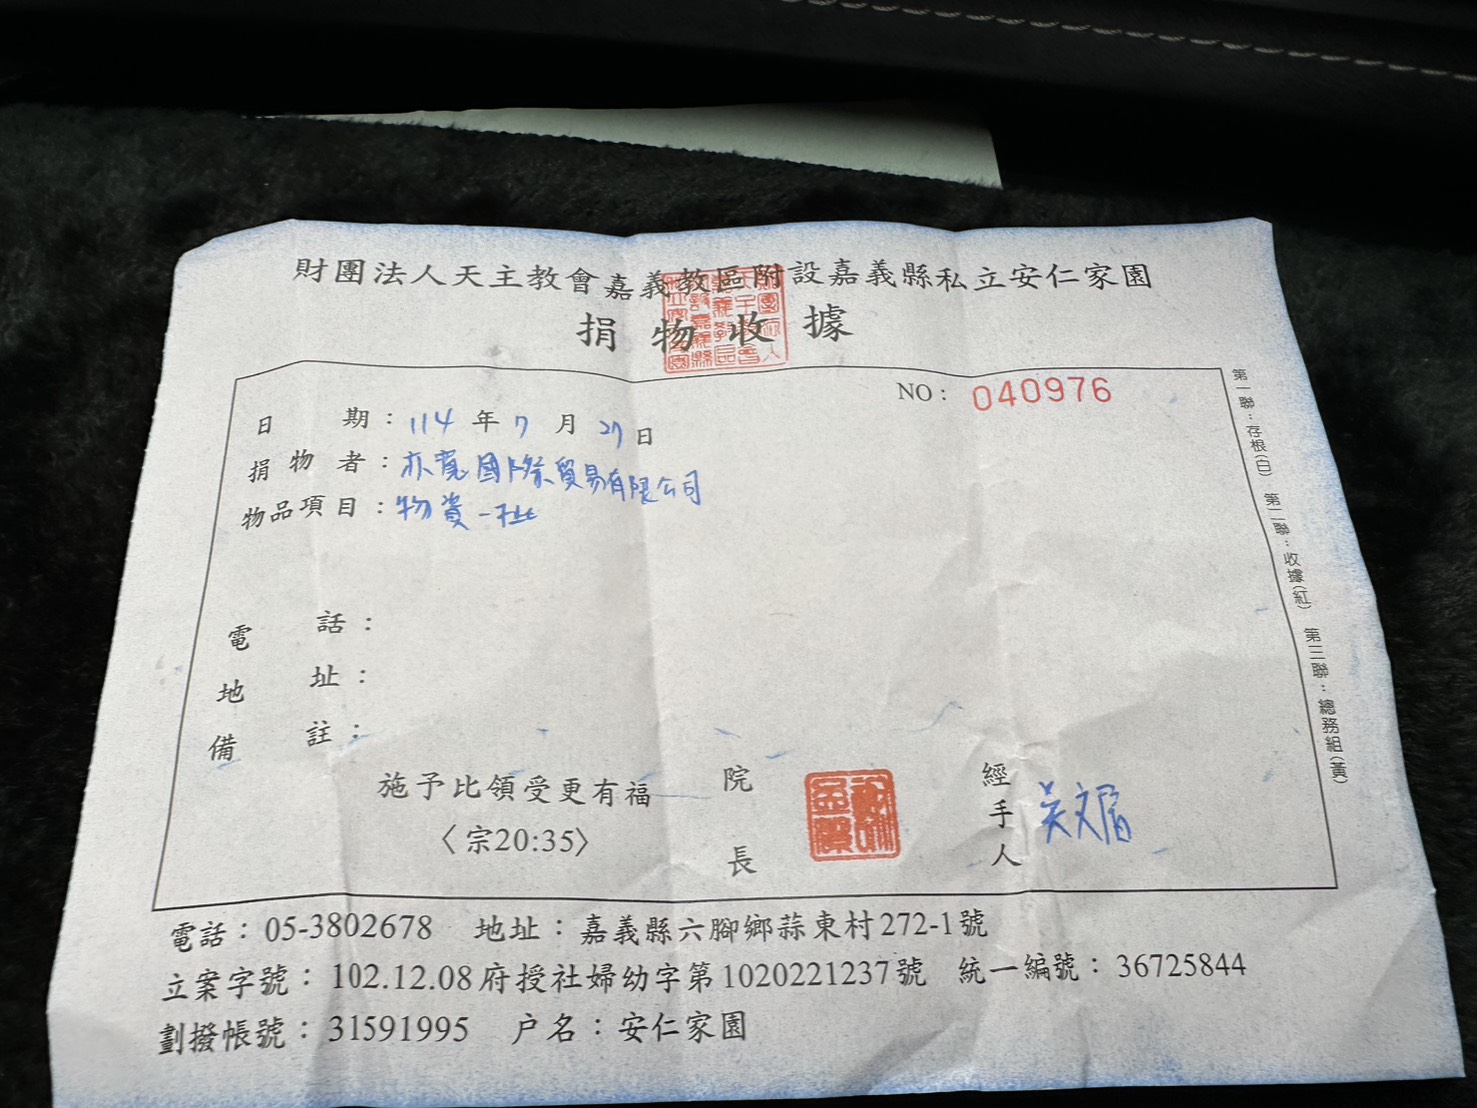 財團法人天主教會嘉義教區附設嘉義縣私立安仁家園
捐物收據
NO: 040976
日期：114年7月27日
捐物者：亦寬國際貿易有限公司
物品項目：物資一批
電話：
地址：
備註：
施予比領受更有福
〈宗20:35〉
院長
經手人 吳文眉
第一聯：存根(白) 第二聯：收據(紅) 第三聯：總務組(黃)
電話：05-3802678 地址：嘉義縣六腳鄉蒜東村272-1號
立案字號：102.12.08府授社婦幼字第1020221237號 統一編號：36725844
劃撥帳號：31591995 戶名：安仁家園